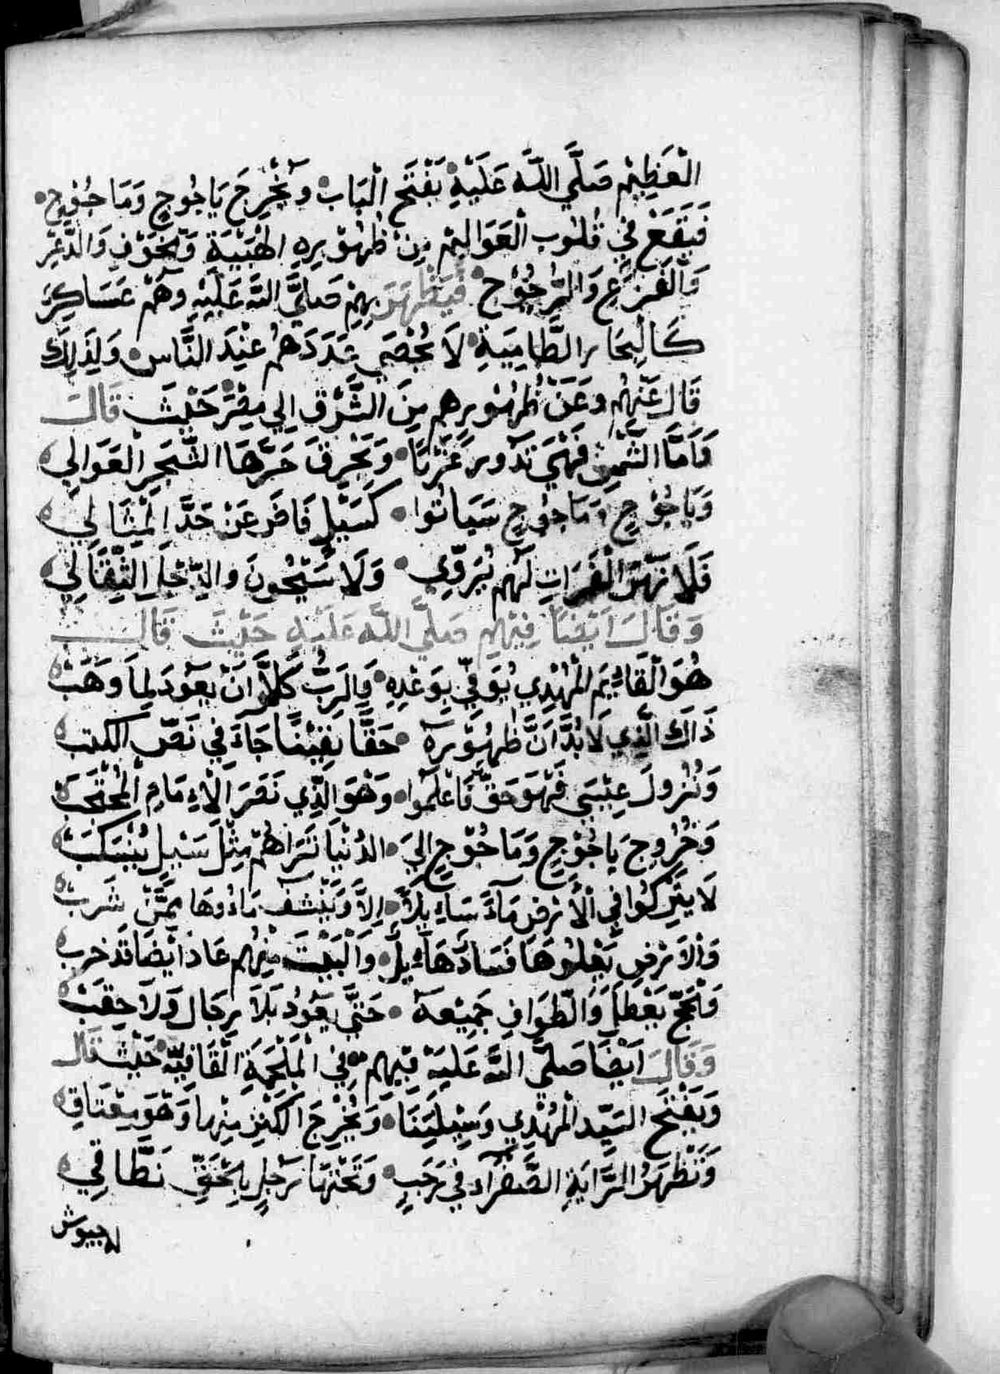 الْعَظِيْمِ صَلَّي اللَّه عَلَيْهِ يَفْتَح الْبَاب وَيُخْرِجَ يَاجُوجٍ وَمَاجُوْجٍ
فَيَقَعْ فِي قُلُوب الْعَوَالِمْ مِنْ ظُهُوْرِهِ الْهَيْبَةِ وَالْخَوْفِ وَالذُّعْرِ
وَالْفَزَعِ وَالرُّجُوْج فَيَظْهَرَ بِهِمْ صَلَّيَ اللَّه عَلَيْهِ وَهُمْ عَسَاكِرَ
كَالْبِحَار الطَّامِيَةِ لَا يُحْصَي عَدَدَهُمْ عِنْدَ النَّاس وَلِذَلِكَ
قَالَ عَنْهُم وَعَنْ ظُهُوْرِهِم مِنَ الشَّرْق اِلي مِصْرَ حَيْث قَالَ
وَاَمَّا الشَّمْس فَهْيَ تَدُور غَرْبًا وَيَحْرِقَ حَرَّهَا الشَّجَرِ الْعَوَالِي
وَيَاجُوْجٍ وَمَاجُوْجٍ سَيَاتُوا كَسَيْلٍ فَاضَ عَنْ حَدَّ الْمِثَالِي
فَلَا نَهْرَ الْفُرَاتِ لَهُم يُرَوِّي وَلَا سَيْحُونَ وَالدِّجْلَ الثِّقَالِي
وَقَالَ اَيْضًا فِيْهِم صَلَّي اللَّه عَلَيْهِ حَيْثَ قَالَ
هُوَ الْقَايِمَ الْمَهْدِي يُوَفِّي بِوَعْدِهِ وَالرَبُّ كَلَّا اَنْ يَعُودَ لِمَا وَهَبْ
ذَالَكَ الَّذِي لَا بُدَّ اَنَّ ظُهُوْرِهِ حَقًا يَقِيْنًا جَاءَ فِي نَصّ الكتب
وَنُزُولَ عِيْسَي فَهْوَ حَقّ فَاعْلَمُوا وَهْوَ الَّذِي نَصَرَ الْاِمَامِ الْمُحْتَجَبْ
وَخُرُوجَ يَاجُوْجٍ وَمَاجُوْجٍ اِلي الدُنْيَا تَرَاهُمْ مِثْلَ سَيْلٍ يَنْسَكَبْ
لَا يَتْرُكُوا فِي الْأَرْضِ مَآءً سَايِلًا اِلَّا وَيَنْشَف مَاوُهَا مِمَّنْ شَرِبْ
وَالْاَرْضِ يَعْلُوهَا فَسَادَهَايِلٌ وَالْبَيْتَ مِنْهُم عَادَ اَيْضًا قَدْ خرب
وَالْحَجّ يَعْطَل وَالطَّوَافِ جَمِيْعَهُ حَتَّي يَعُودُ بَلَا رِجَالٍ وَلَا حِقَبْ
وَقَالَ اَيْضًا صَلَّي اللَّه عَلَيْهِ فِيْهِم فِي الْمَلْحَمَةِ الْقَافِيَّه حَيْثَ قَال
وَيَفْتَحَ السَيِّد الْمَهْدِي وَسِيْلَتِنَا وَيُخْرِجَ الْكَنْز مِنْهَا وَهْوَ مِغْتَاقِي
وَتَظْهَرُ الرَّايَةِ الصَّفْرَاء فِي رَجَبٍ وَتَحْتَهَا رَجْلٍ بِالْحَقِّ نَطَّاقِي
لاجيوش